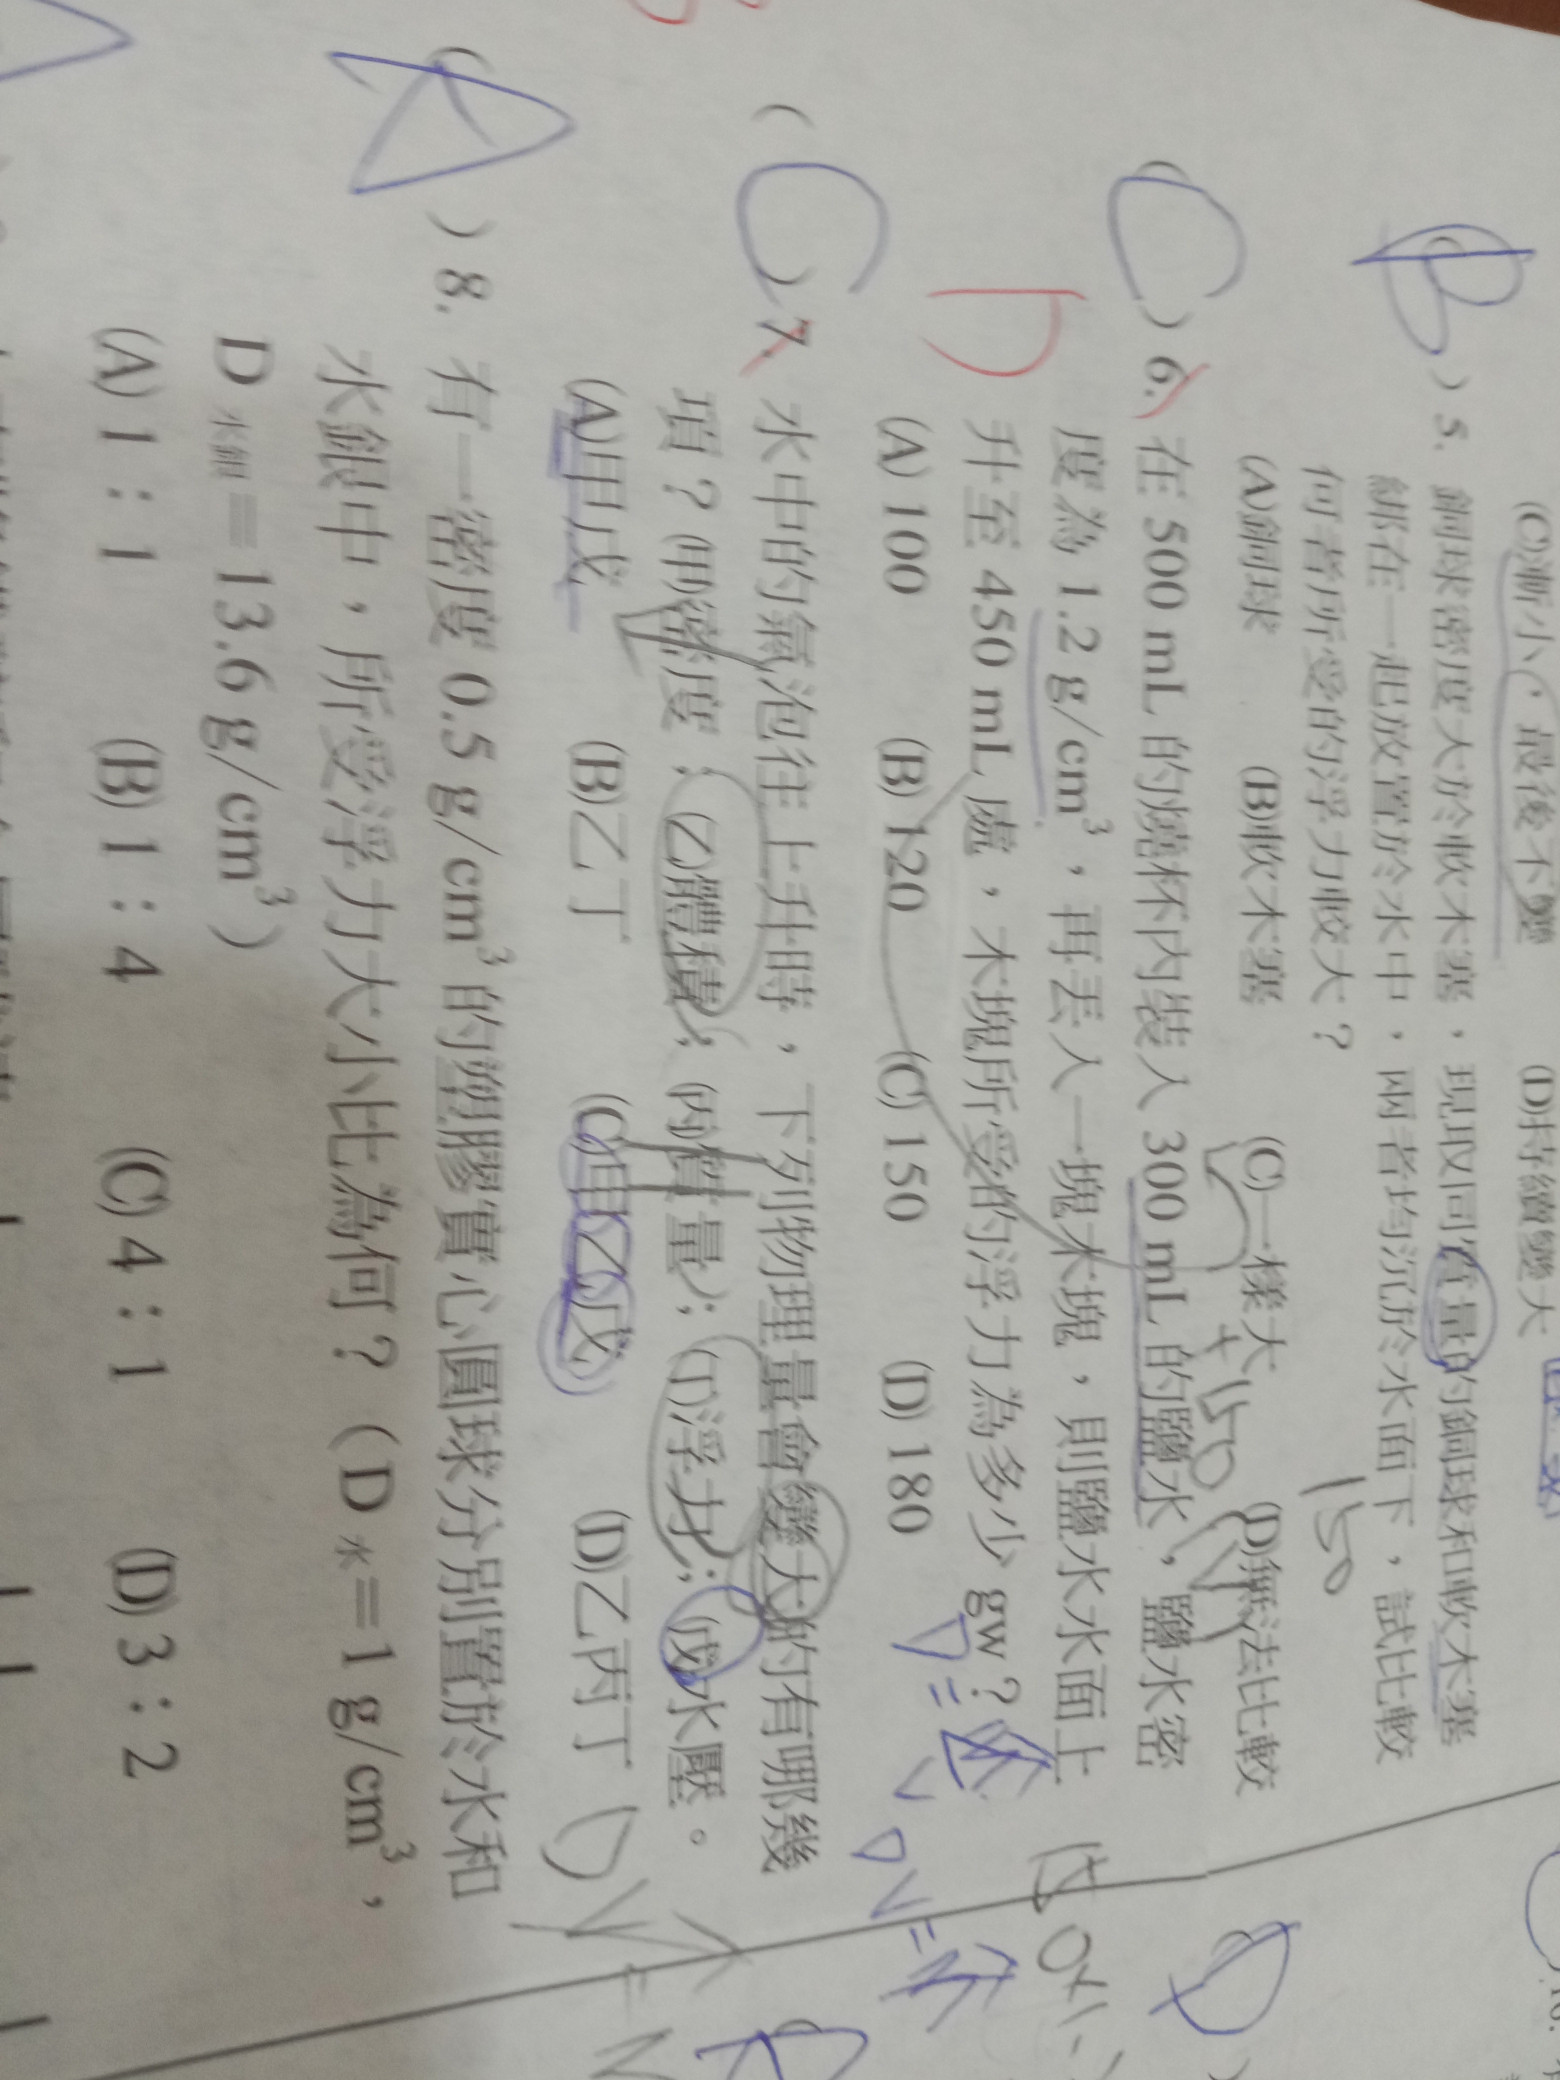 (C)漸小，最後不變 (D)持續變大
B ) 5. 銅球密度大於軟木塞，現取同質量的銅球和軟木塞
綁在一起放置於水中，兩者均沉於水面下，試比較
何者所受的浮力較大？
150
(A)銅球 (B)軟木塞 (C)一樣大 (D)無法比較
( C ) 6. 在 500 mL 的燒杯內裝入 300 mL 的鹽水，鹽水密
度為 1.2 g/cm³，再丟入一塊木塊，則鹽水水面上
升至 450 mL 處，木塊所受的浮力為多少 gw？
D
(A) 100 (B) 120 (C) 150 (D) 180
( C ) 7. 水中的氣泡往上升時，下列物理量會變大的有哪幾
項？(甲)密度；(乙)體積；(丙)質量；(丁)浮力；(戊)水壓。
(A)甲戊 (B)乙丁 (C)甲乙戊 (D)乙丙丁
( A ) 8. 有一密度 0.5 g/cm³ 的塑膠實心圓球分別置於水和
水銀中，所受浮力大小比為何？（D水＝1 g/cm³，
D水銀＝13.6 g/cm³）
(A) 1：1 (B) 1：4 (C) 4：1 (D) 3：2